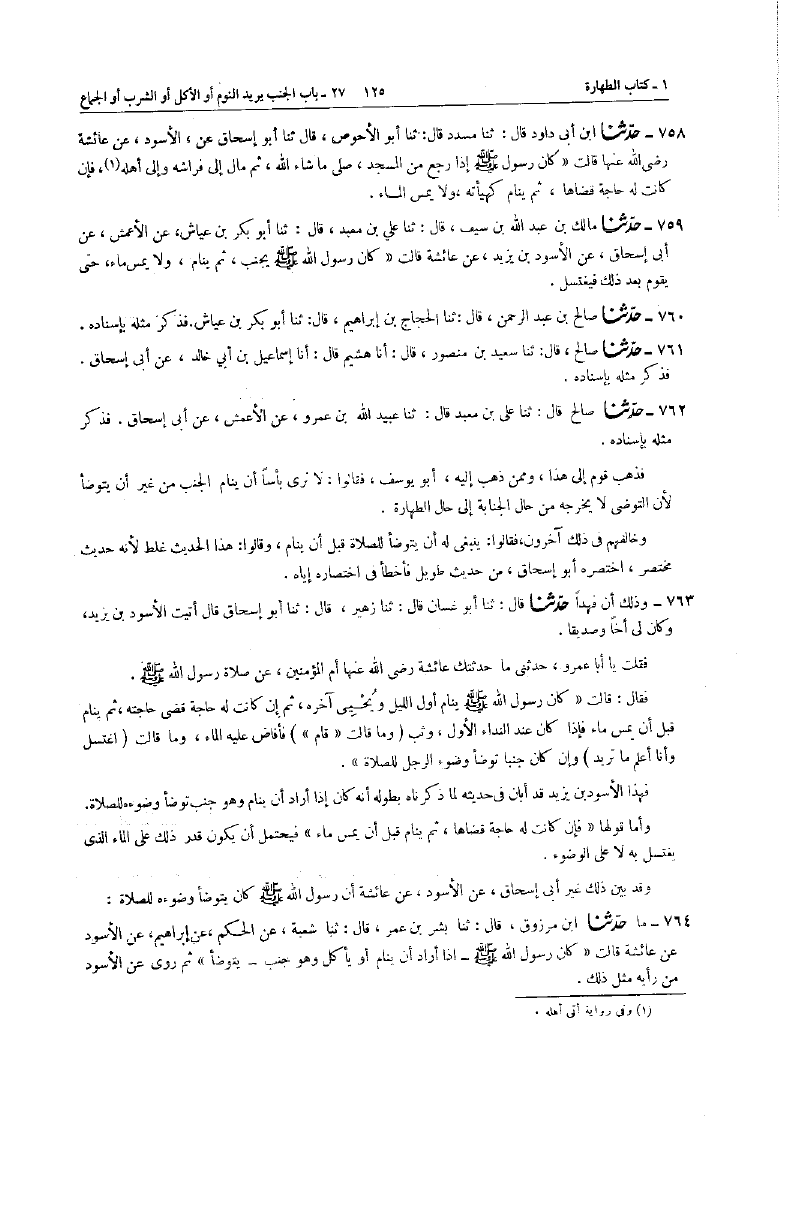 ١ ـ كتاب الطهارة ١٢٥ ٢٧ ـ باب الجنب يريد النوم أو الأكل أو الشرب أو الجماع
٧٥٨ ـ حدثنا ابن أبى داود قال : ثنا مسدد قال: ثنا أبو الأحوص ، قال ثنا أبو إسحاق عن ، الأسود ، عن عائشة
رضى الله عنها قالت « كان رسول ﷺ إذا رجع من المسجد ، صلى ما شاء الله ، ثم مال إلى فراشه وإلى أهله(١)، فإن
كانت له حاجة قضاها ، ثم ينام كهيأته ،ولا يمس المـاء .
٧٥٩ ـ حدثنا مالك بن عبد الله بن سيف ، قال : ثنا علي بن معبد ، قال : ثنا أبو بكر بن عياش، عن الأعمش ، عن
أبى إسحاق ، عن الأسود بن يزيد ، عن عائشة قالت « كان رسول الله ﷺ يجنب ، ثم ينام ، ولا يمس ماء، حتى
يقوم بعد ذلك فيغتسل .
٧٦٠ ـ حدثنا صالح بن عبد الرحمن ، قال :ثنا الحجاج بن إبراهيم ، قال: ثنا أبو بكر بن عياش.فذكر مثله بإسناده .
٧٦١ ـ حدثنا صالح ، قال: ثنا سعيد بن منصور ، قال : أنا هشيم قال : أنا إسماعيل بن أبي خالد ، عن أبى إسحاق .
فذكر مثله بإسناده .
٧٦٢ ـ حدثنا صالح قال : ثنا على بن معبد قال : ثنا عبيد الله بن عمرو ، عن الأعمش ، عن أبى إسحاق . فذكر
مثله بإسناده .
فذهب قوم إلى هذا ، وممن ذهب إليه ، أبو يوسف ، فقالوا : لا نرى بأساً أن ينام الجنب من غير أن يتوضأ
لأن التوضى لا يخرجه من حال الجنابة إلى حال الطهارة .
وخالفهم فى ذلك آخرون،فقالوا: ينبغى له أن يتوضأ للصلاة قبل أن ينام ، وقالوا: هذا الحديث غلط لأنه حديث
مختصر ، اختصره أبو إسحاق ، من حديث طويل فأخطأ فى اختصاره إياه .
٧٦٣ ـ وذلك أن فهداً حدثنا قال : ثنا أبو غسان قال : ثنا زهير ، قال : ثنا أبو إسحاق قال أتيت الأسود بن يزيد،
وكان لى أخاً وصديقا .
فقلت يا أبا عمرو ، حدثنى ما حدثتك عائشة رضى الله عنها أم المؤمنين ، عن صلاة رسول الله ﷺ .
فقال : قالت « كان رسول الله ﷺ ينام أول الليل ويُحْيِـى آخره ، ثم إن كانت له حاجة قضى حاجته ،ثم ينام
قبل أن يمس ماء فإذا كان عند النداء الأول ، وثب ( وما قالت « قام » ) فأفاض عليه الماء ، وما قالت ( اغتسل
وأنا أعلم ما تريد ) وإن كان جنبا توضأ وضوء الرجل للصلاة » .
فهذا الأسود بن يزيد قد أبان فى حديثه لما ذكرناه بطوله أنه كان إذا أراد أن ينام وهو جنب توضأ وضوءه للصلاة.
وأما قولها « فإن كانت له حاجة قضاها ، ثم ينام قبل أن يمس ماء » فيحتمل أن يكون قدر ذلك على الماء الذى
يغتسل به لا على الوضوء .
وقد بين ذلك غير أبى إسحاق ، عن الأسود ، عن عائشة أن رسول الله ﷺ كان يتوضأ وضوءه للصلاة :
٧٦٤ ـ ما حدثنا ابن مرزوق ، قال : ثنا بشر بن عمر ، قال : ثنا شعبة ، عن الحكم ،عن إبراهيم، عن الأسود
عن عائشة قالت « كان رسول الله ﷺ ـ اذا أراد أن ينام أو يأكل وهو جنب ـ يتوضأ » ثم روى عن الأسود
من رأيه مثل ذلك .
(١) وفى رواية أتى أهله .